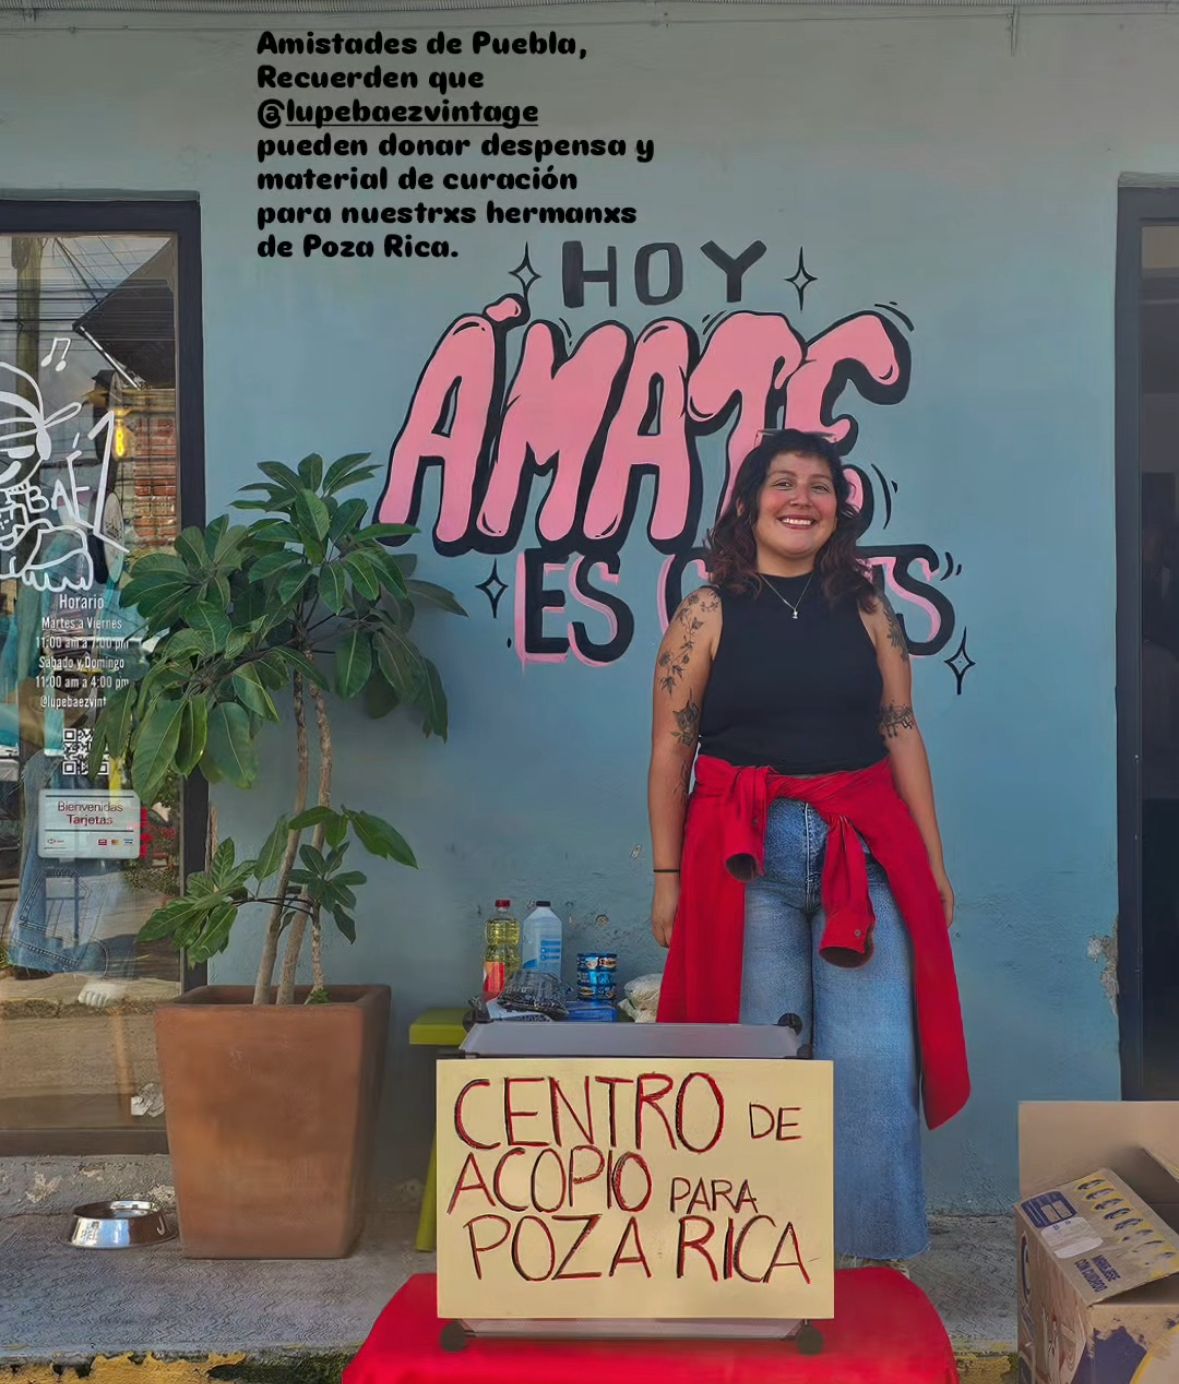 Amistades de Puebla,
Recuerden que
@lupebaezvintage
pueden donar despensa y
material de curación
para nuestrxs hermanxs
de Poza Rica.
HOY
ÁMATE
ES
S
Horario
Martes a Viernes
11:00 am a 7:00 pm
Sábado y Domingo
11:00 am a 4:00 pm
@lupebaezvint
Bienvenidas
Tarjetas
CENTRO DE
ACOPIO PARA
POZA RICA
MANEJESE
CON CUIDADO